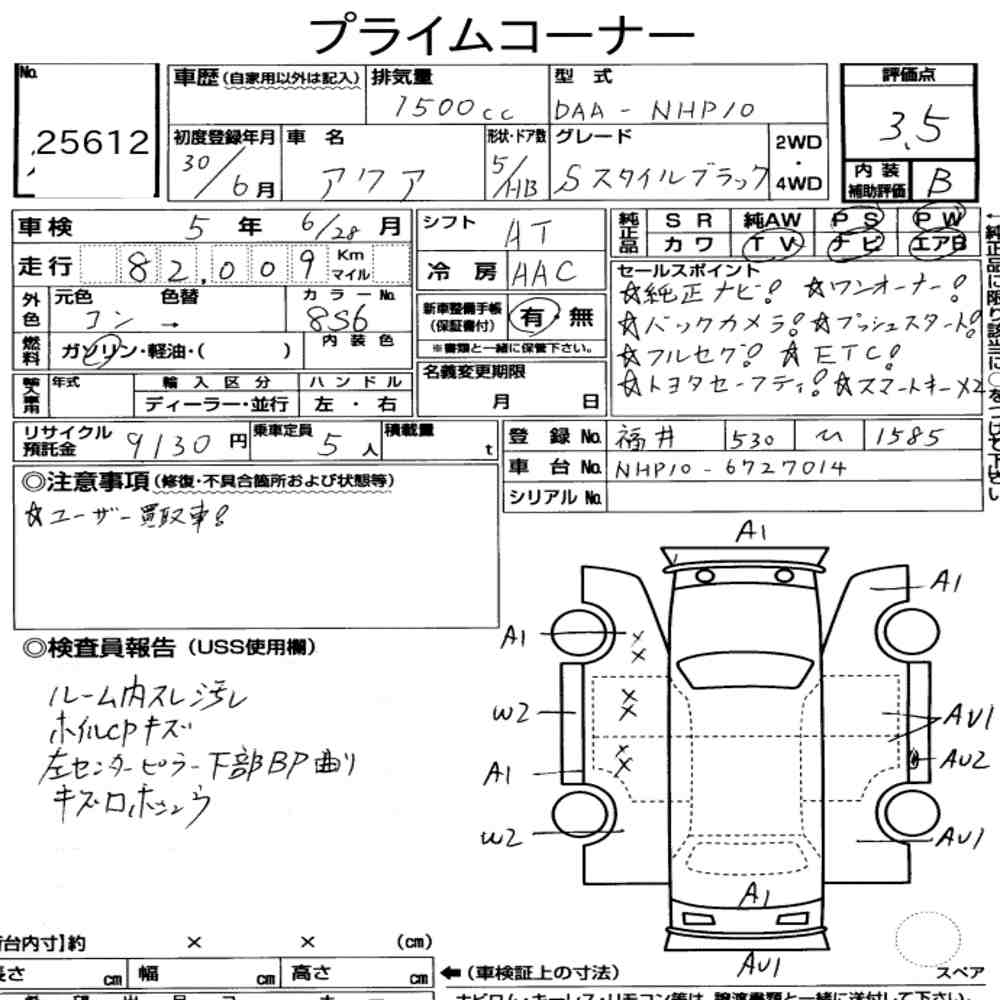 プライムコーナー
No.
25612
車歴(自家用以外は記入)
排気量
1500cc
型式
DAA-NHP10
評価点
3.5
初度登録年月
30/6月
車名
アクア
形状・ドア数
5/HB
グレード
Sスタイルブラック
2WD
・
4WD
内装
補助評価
B
車検 5年 6/28月
シフト
AT
走行 82,009 Km
マイル
冷房
AAC
純正品
SR 純AW PS PW
カワ TV ナビ エアB
外色
元色 色替
コン →
カラーNo.
8S6
燃料
ガソリン・軽油・( )
内装色
新車整備手帳
(保証書付)
有・無
※書類と一緒に保管下さい。
輸入車用
年式
輸入区分
ディーラー・並行
ハンドル
左・右
名義変更期限
月 日
セールスポイント
☆純正ナビ! ☆ワンオーナー!
☆バックカメラ! ☆プッシュスタート!
☆フルセグ! ☆ETC!
☆トヨタセーフティ! ☆スマートキー×2
←純正品に限り該当に○をつけて下さい
リサイクル
預託金
9130円
乗車定員
5人
積載量
t
登録No. 福井 530 ひ 1585
車台No. NHP10-6727014
シリアルNo.
◎注意事項(修復・不具合箇所および状態等)
☆ユーザー買取車!
◎検査員報告(USS使用欄)
ルーム内スレ汚レ
ホイルCPキズ
左センターピラー下部BP曲り
A1
A1
A1
W2
AU1
A1
AU2
W2
AU1
A1
AU1
スペア
荷台内寸】約 × × (cm)
長さ cm 幅 cm 高さ cm
←(車検証上の寸法)